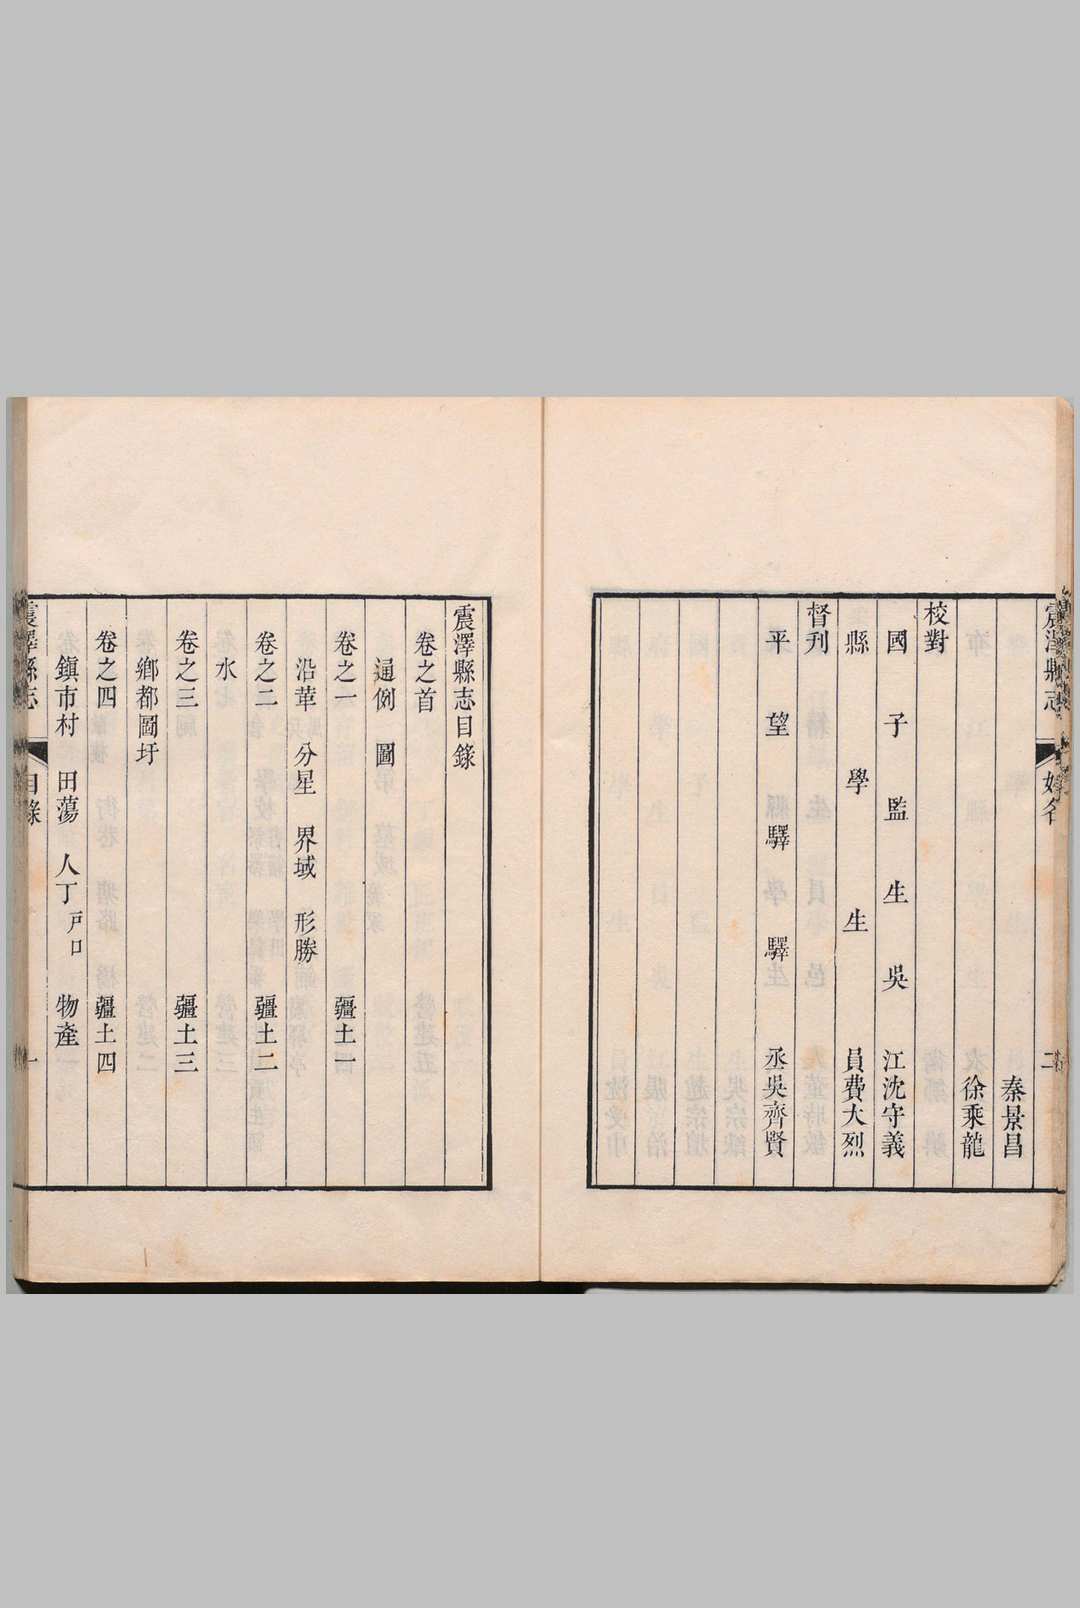 震澤縣志
姓名
二
秦景昌
徐乘龍
校對
國子監生吳江沈守義
縣學生員費大烈
督刊
平望縣驛驛丞吳齊賢
震澤縣志目錄
卷之首
通例 圖
卷之一 疆土一
沿革 分星 界域 形勝
卷之二 疆土二
水
卷之三 疆土三
鄉都圖圩
卷之四 疆土四
鎮市村 田蕩 人丁戶口 物產
震澤縣志
目錄
一